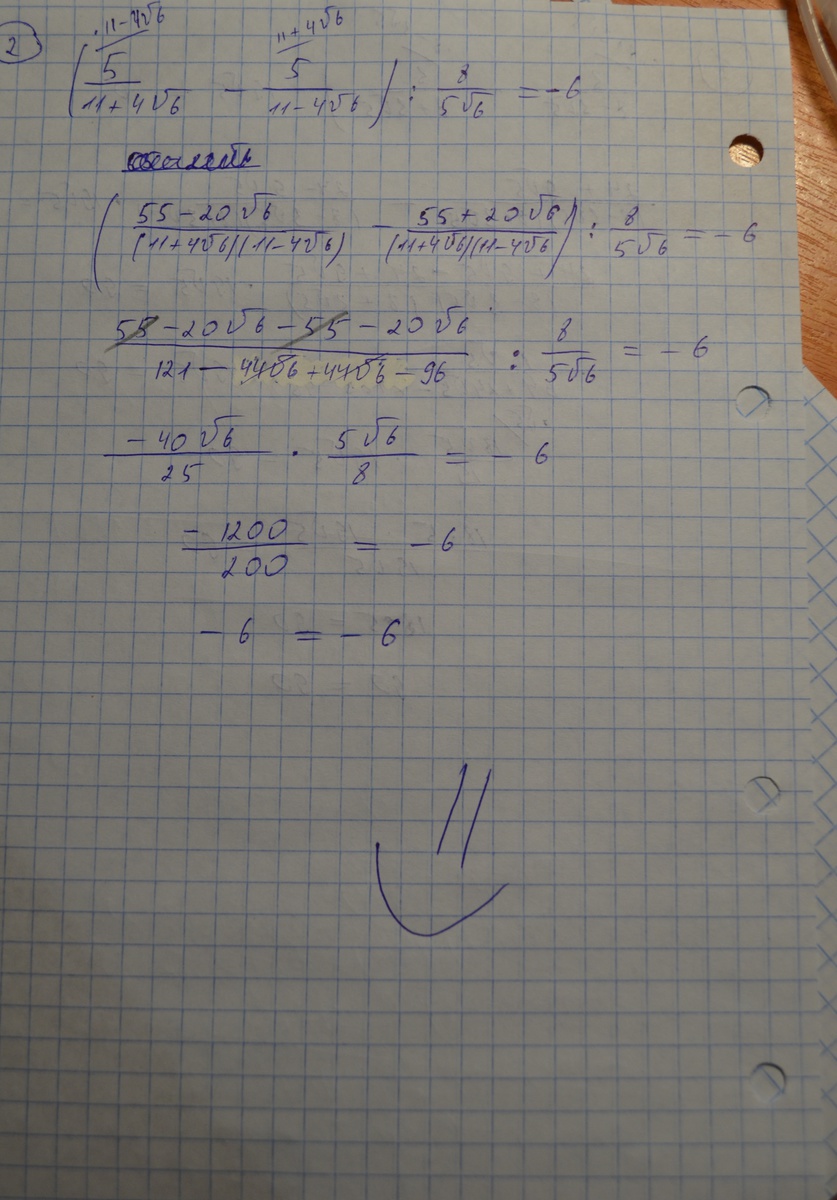 2
·11-4√6 11+4√6
(5/(11+4√6) - 5/(11-4√6)) : 8/(5√6) = -6
((55-20√6)/((11+4√6)(11-4√6)) - (55+20√6)/((11+4√6)(11-4√6))) : 8/(5√6) = -6
(55-20√6-55-20√6)/(121-44√6+44√6-96) : 8/(5√6) = -6
(-40√6)/25 · (5√6)/8 = -6
(-1200)/200 = -6
-6 = -6